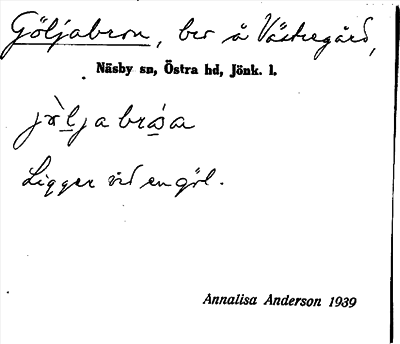 Göljabron, ber å Västregård,
Näsby sn, Östra hd, Jönk. l.
Ligger vid en göl.
Annalisa Anderson 1939